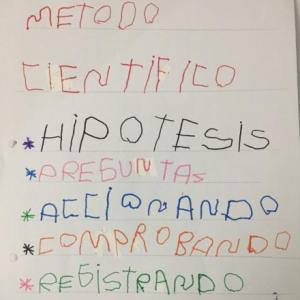 METODO
CIENTIFICO
*HIPOTESIS
*PREGUNTAS
*ACCIONANDO
*COMPROBANDO
*REGISTRANDO